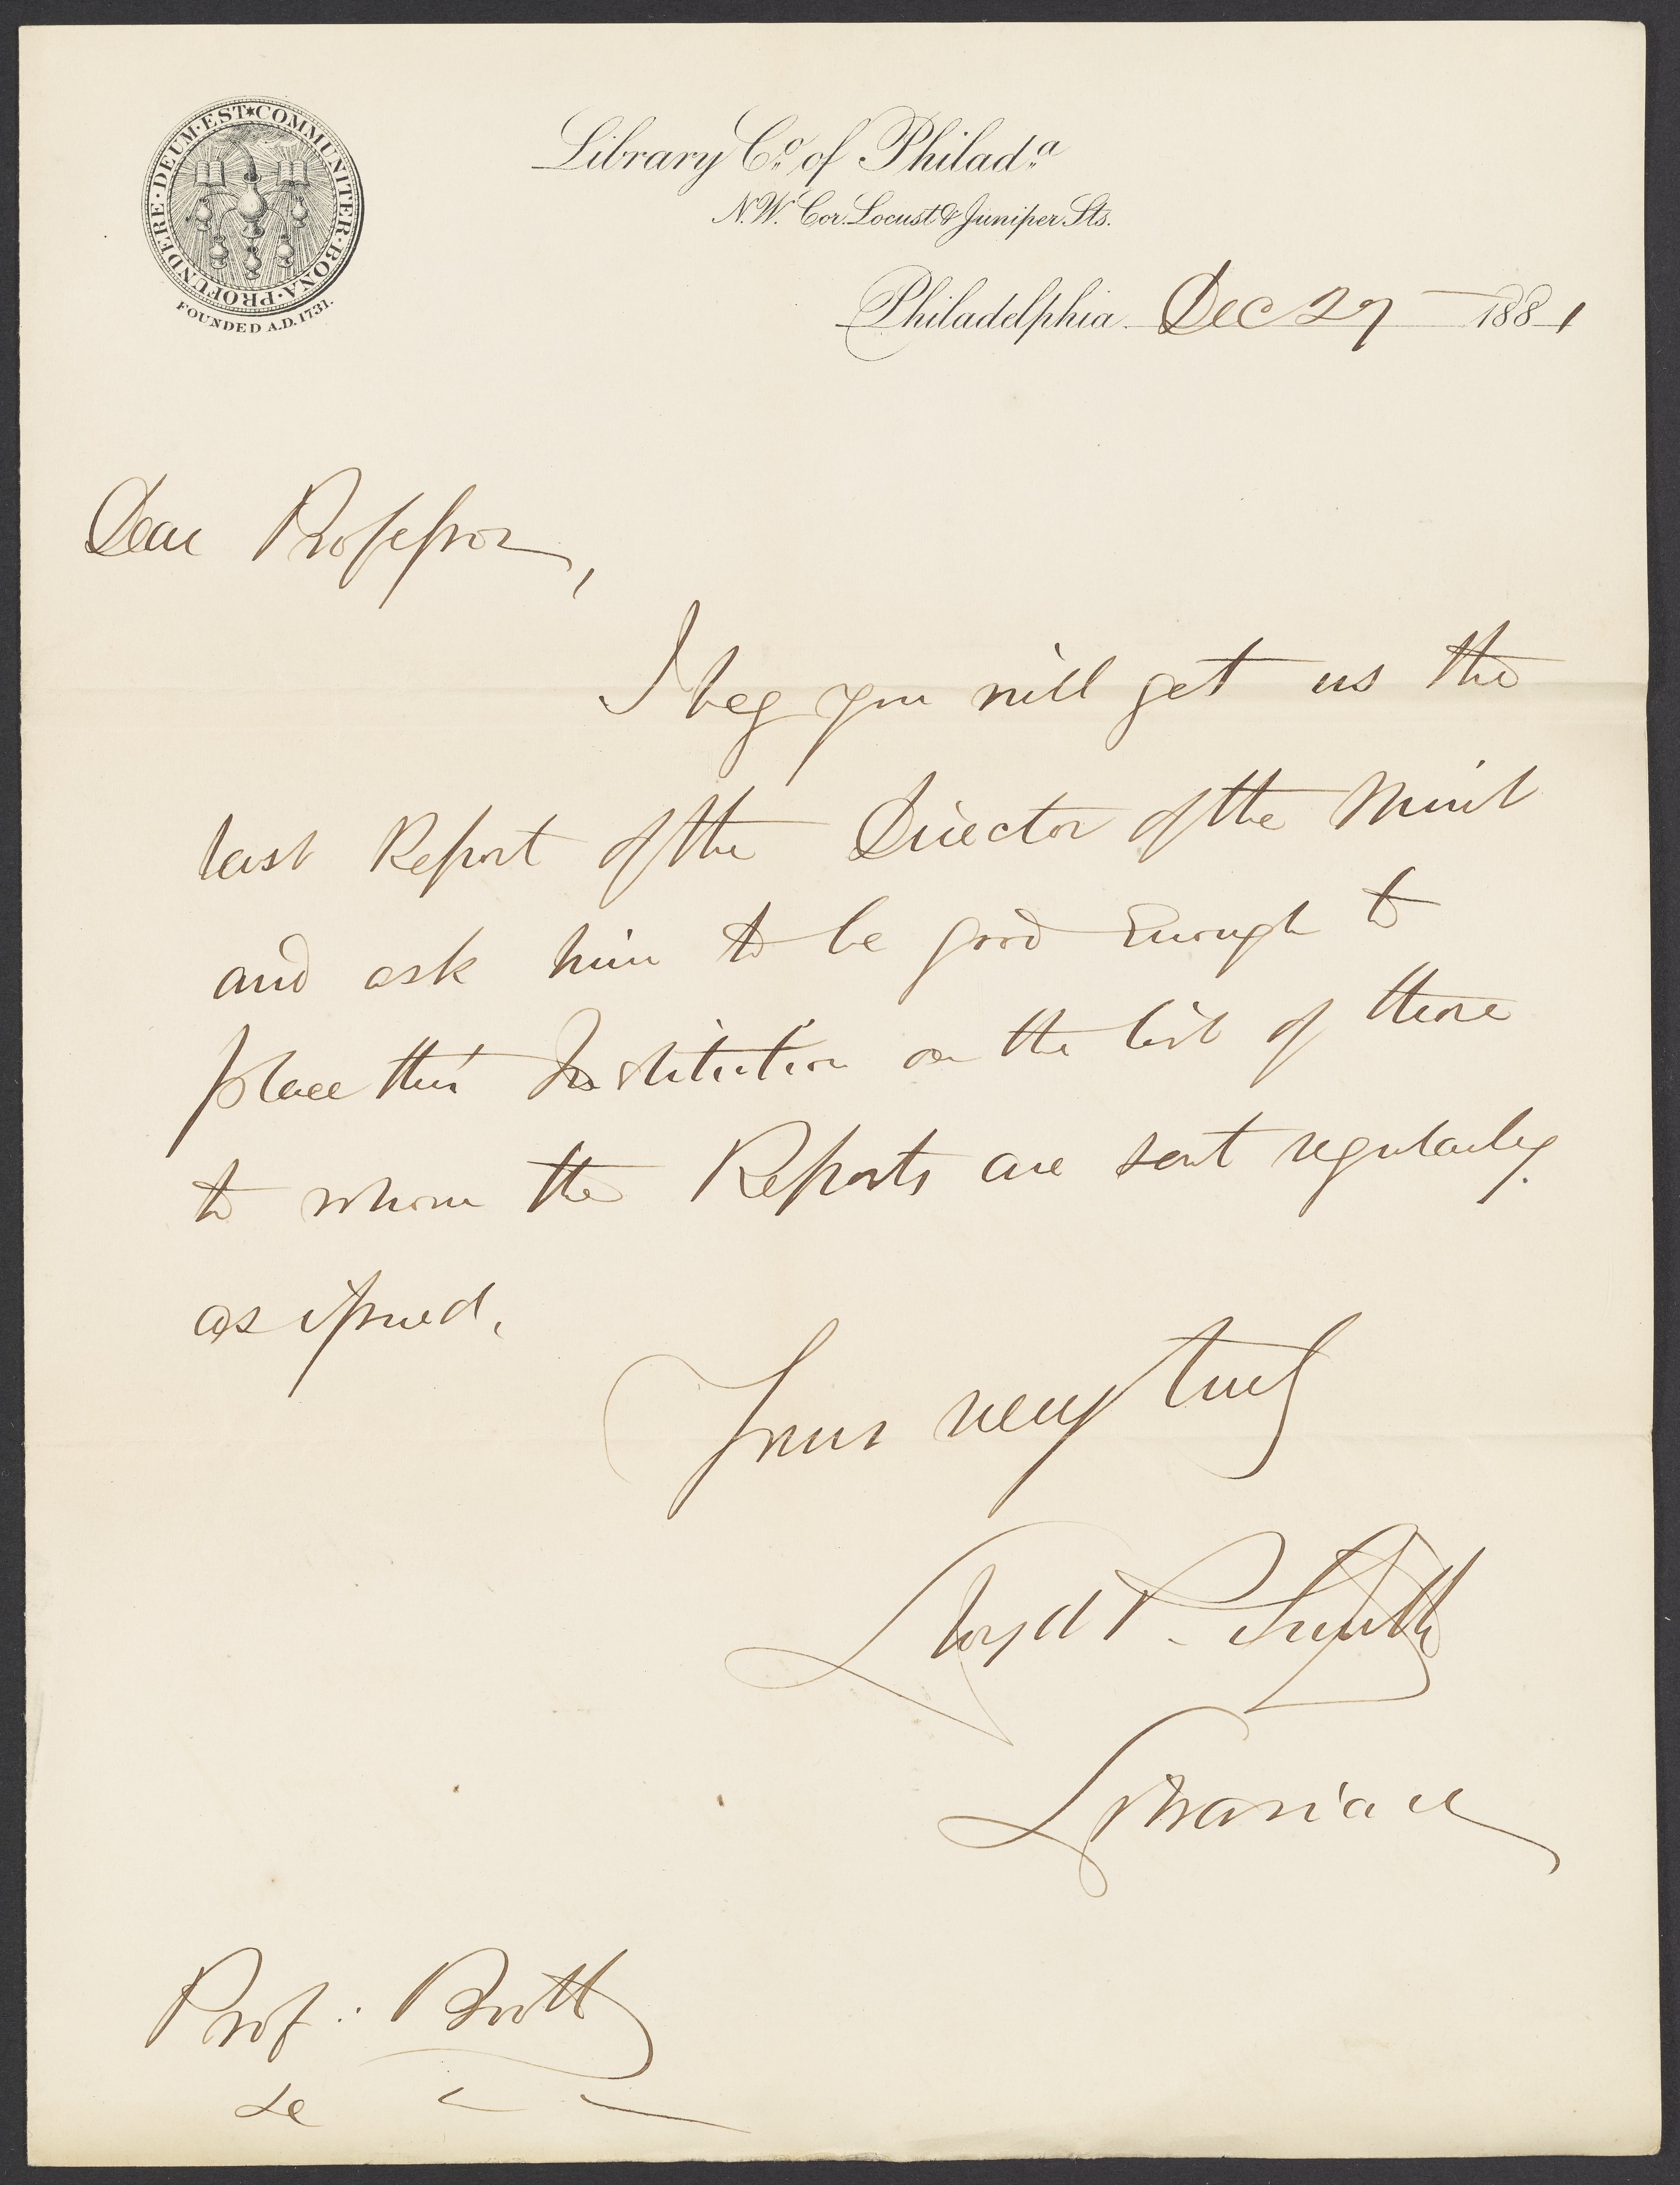 COMMUNITER·BONA·PROFUNDERE·DEUM·EST
FOUNDED A.D. 1731.
Library Co. of Philada.
N.W. Cor. Locust & Juniper Sts.
Philadelphia Dec 27 1881
Dear Professor,
I beg you will get us the
last Report of the Director of the Mint
and ask him to be good Enough to
place this Institution on the list of those
to whom the Reports are sent regularly
as issued.
Yours very truly
Lloyd P. Smith
Librarian
Prof: Booth